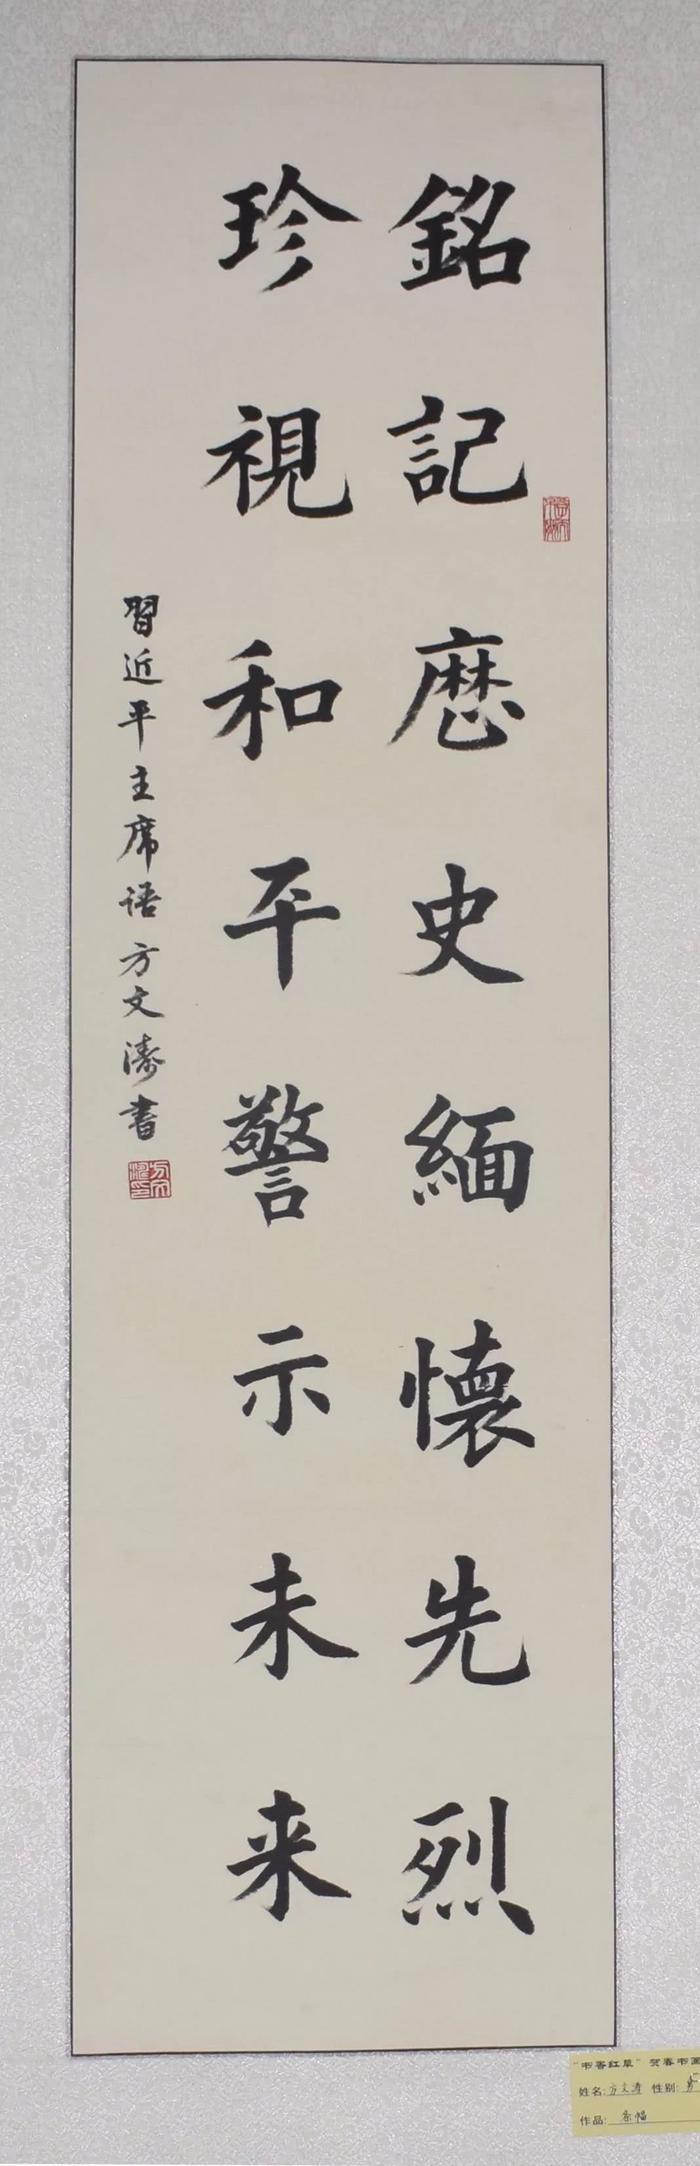 銘記歴史緬懷先烈
珍視和平警示未来
習近平主席语方文濤書
方文濤印
"书香红草"贺春书画
姓名:方文涛 性别:男
作品:条幅